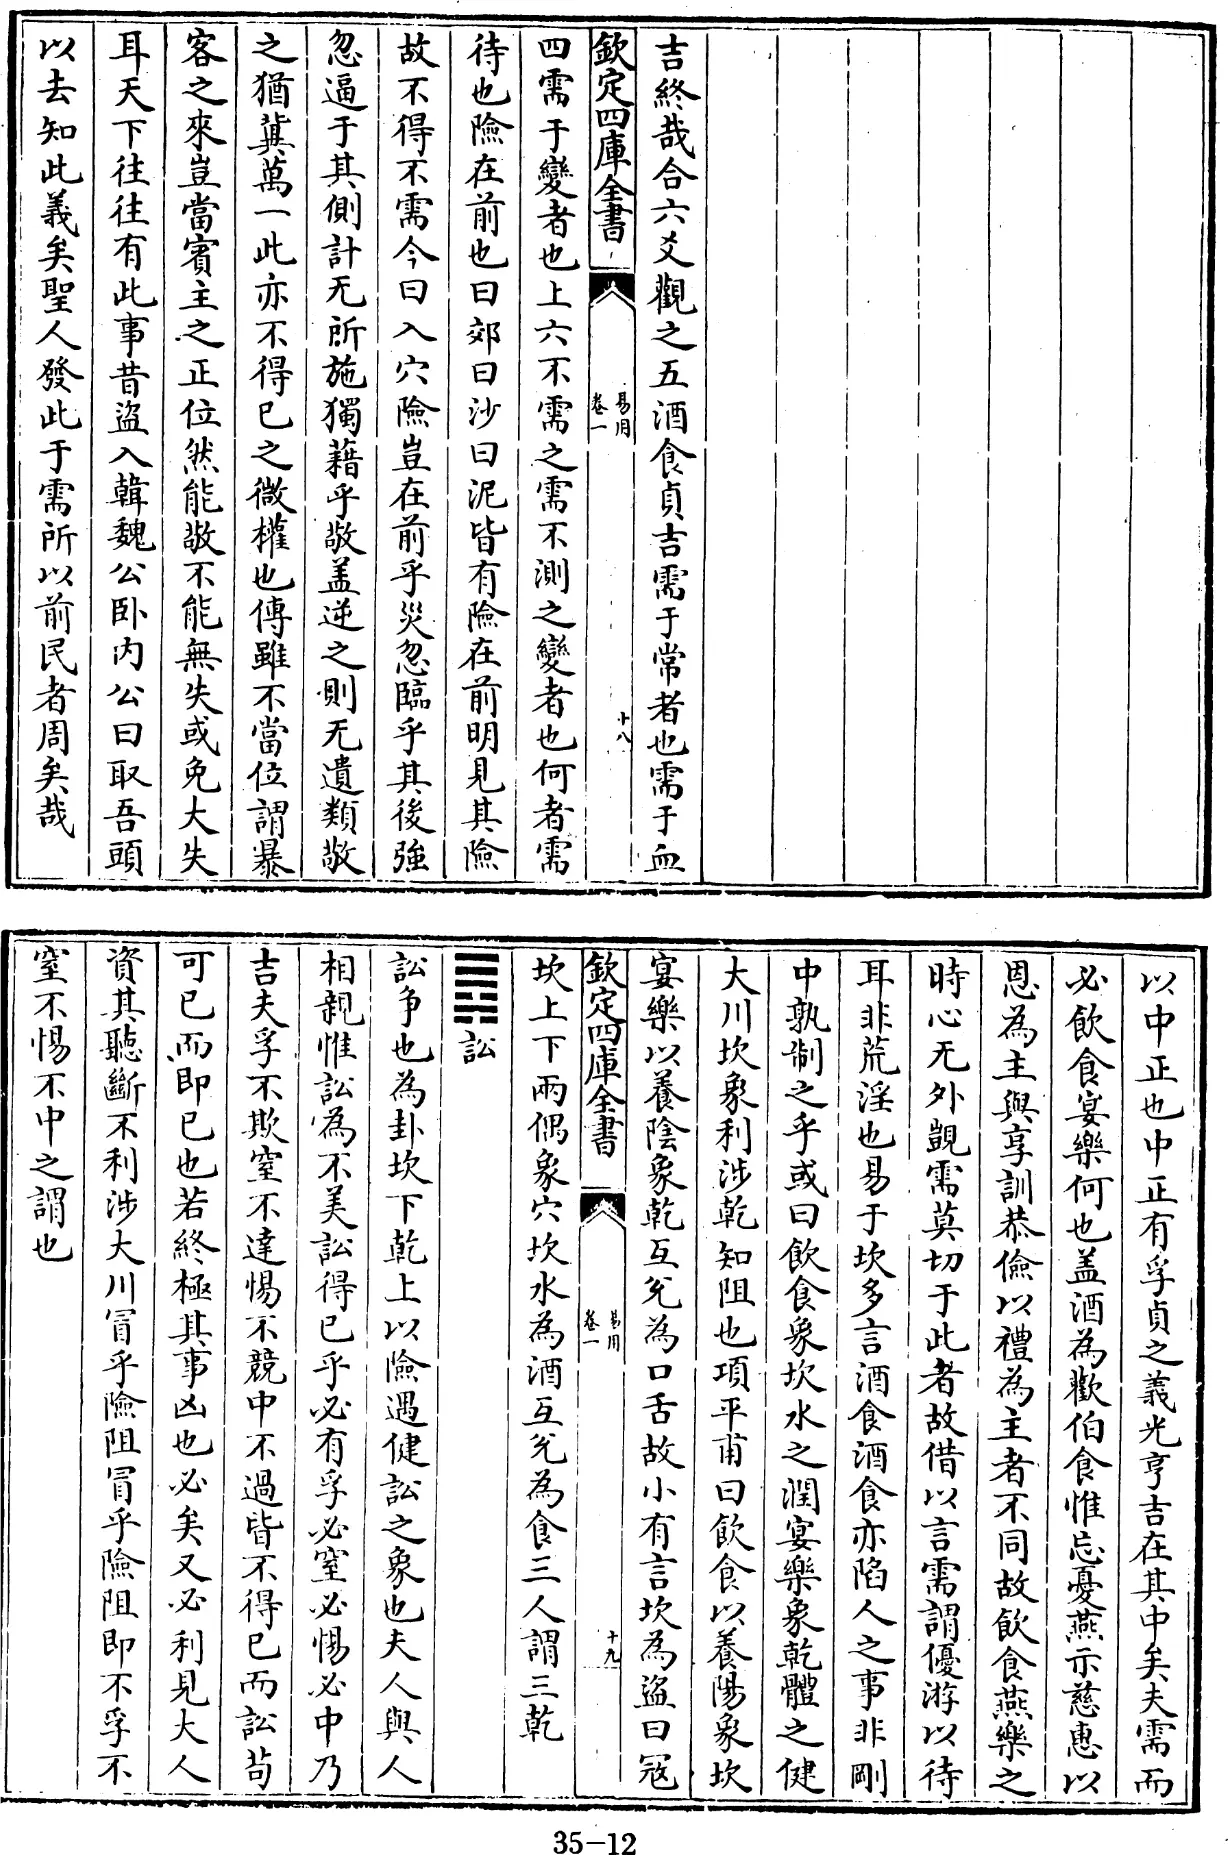 吉終哉合六爻觀之五酒食貞吉需于常者也需于血
欽定四庫全書
易用
卷一
十八
四需于變者也上六不需之需不測之變者也何者需
待也險在前也曰郊曰沙曰泥皆有險在前明見其險
故不得不需今曰入穴險豈在前乎災忽臨乎其後強
忽逼于其側計无所施獨藉乎敬盖逆之則无遺類敬
之猶冀萬一此亦不得已之微權也傳雖不當位謂暴
客之來豈當賓主之正位然能敬不能無失或免大失
耳天下往往有此事昔盜入韓魏公卧内公曰取吾頭
以去知此義矣聖人發此于需所以前民者周矣哉
以中正也中正有孚貞之義光亨吉在其中矣夫需而
必飲食宴樂何也盖酒為歡伯食惟忘憂燕示慈惠以
恩為主與享訓恭儉以禮為主者不同故飲食燕樂之
時心无外覬需莫切于此者故借以言需謂優游以待
耳非荒淫也易于坎多言酒食酒食亦陷人之事非剛
中孰制之乎或曰飲食象坎水之潤宴樂象乾體之健
大川坎象利涉乾知阻也項平甫曰飲食以養陽象坎
宴樂以養陰象乾互兊為口舌故小有言坎為盜曰冦
欽定四庫全書
易用
卷一
十九
坎上下兩偶象穴坎水為酒互兊為食三人謂三乾
䷅訟
訟争也為卦坎下乾上以險遇健訟之象也夫人與人
相親惟訟為不美訟得已乎必有孚必窒必惕必中乃
吉夫孚不欺窒不達惕不競中不過皆不得已而訟茍
可已而即已也若終極其事凶也必矣又必利見大人
資其聽斷不利涉大川冒乎險阻冒乎險阻即不孚不
窒不惕不中之謂也
35-12